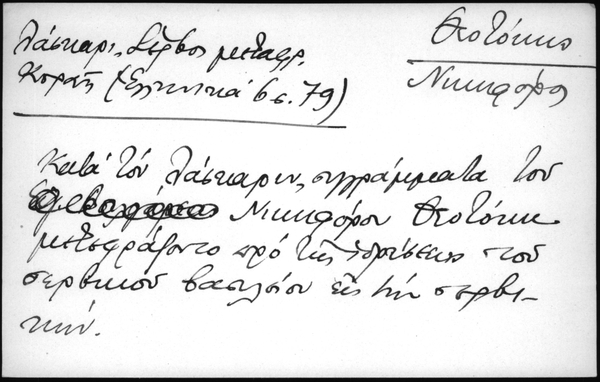 Λάσκαρι, Σέρβος μεταφρ.
Κοραῆ (Ἑλληνικά 6 σ. 79)
Θεοτόκης
Νικηφόρος
Κατά τόν Λάσκαριν, συγγράμματα τοῦ
Νικηφόρου Θεοτόκη
μετεφράζοντο πρό τῆς ἱδρύσεως τοῦ
σερβικοῦ βασιλείου εἰς τήν σερβι-
κήν.